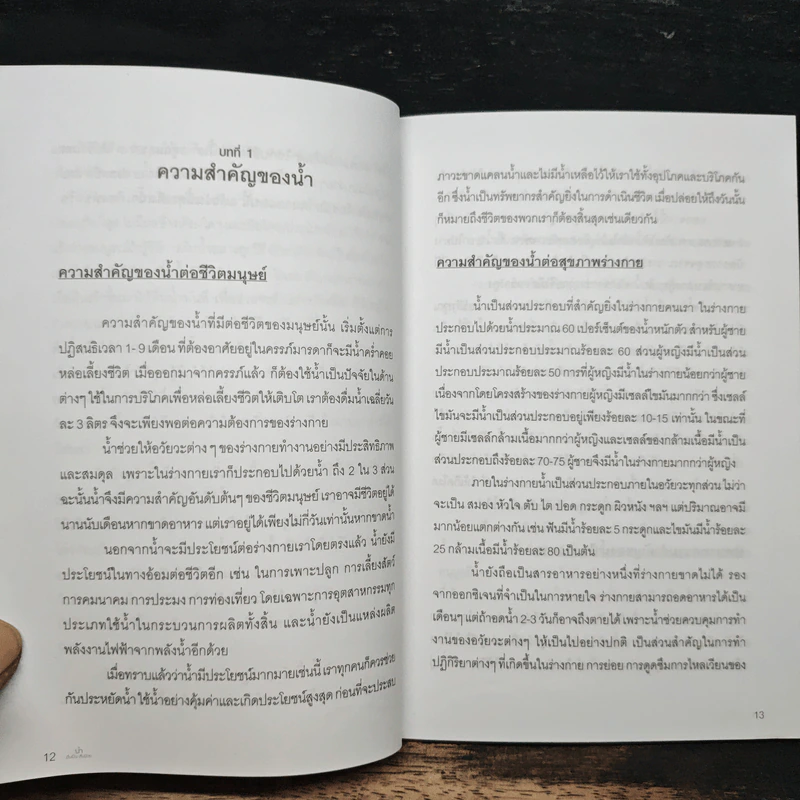 บทที่ 1
ความสำคัญของน้ำ
ความสำคัญของน้ำต่อชีวิตมนุษย์
ความสำคัญของน้ำที่มีต่อชีวิตของมนุษย์นั้น เริ่มตั้งแต่การ
ปฏิสนธิเวลา 1-9 เดือน ที่ต้องอาศัยอยู่ในครรภ์มารดาก็จะมีน้ำคร่ำคอย
หล่อเลี้ยงชีวิต เมื่อออกมาจากครรภ์แล้ว ก็ต้องใช้น้ำเป็นปัจจัยในด้าน
ต่างๆ ใช้ในการบริโภคเพื่อหล่อเลี้ยงชีวิตให้เติบโต เราต้องดื่มน้ำเฉลี่ยวัน
ละ 3 ลิตร จึงจะเพียงพอต่อความต้องการของร่างกาย
น้ำช่วยให้อวัยวะต่าง ๆ ของร่างกายทำงานอย่างมีประสิทธิภาพ
และสมดุล เพราะในร่างกายเราก็ประกอบไปด้วยน้ำ ถึง 2 ใน 3 ส่วน
ฉะนั้นน้ำจึงมีความสำคัญอันดับต้นๆ ของชีวิตมนุษย์ เราอาจมีชีวิตอยู่ได้
นานนับเดือนหากขาดอาหาร แต่เราอยู่ได้เพียงไม่กี่วันเท่านั้นหากขาดน้ำ
นอกจากน้ำจะมีประโยชน์ต่อร่างกายเราโดยตรงแล้ว น้ำยังมี
ประโยชน์ในทางอ้อมต่อชีวิตอีก เช่น ในการเพาะปลูก การเลี้ยงสัตว์
การคมนาคม การประมง การท่องเที่ยว โดยเฉพาะการอุตสาหกรรมทุก
ประเภทใช้น้ำในกระบวนการผลิตทั้งสิ้น และน้ำยังเป็นแหล่งผลิต
พลังงานไฟฟ้าจากพลังน้ำอีกด้วย
เมื่อทราบแล้วว่าน้ำมีประโยชน์มากมายเช่นนี้ เราทุกคนก็ควรช่วย
กันประหยัดน้ำ ใช้น้ำอย่างคุ้มค่าและเกิดประโยชน์สูงสุด ก่อนที่จะประสบ
12
น้ำ
ภาวะขาดแคลนน้ำและไม่มีน้ำเหลือไว้ให้เราใช้ทั้งอุปโภคและบริโภคกัน
อีก ซึ่งน้ำเป็นทรัพยากรสำคัญยิ่งในการดำเนินชีวิต เมื่อปล่อยให้ถึงวันนั้น
ก็หมายถึงชีวิตของพวกเราก็ต้องสิ้นสุดเช่นเดียวกัน
ความสำคัญของน้ำต่อสุขภาพร่างกาย
น้ำเป็นส่วนประกอบที่สำคัญยิ่งในร่างกายคนเรา ในร่างกาย
ประกอบไปด้วยน้ำประมาณ 60 เปอร์เซ็นต์ของน้ำหนักตัว สำหรับผู้ชาย
มีน้ำเป็นส่วนประกอบประมาณร้อยละ 60 ส่วนผู้หญิงมีน้ำเป็นส่วน
ประกอบประมาณร้อยละ 50 การที่ผู้หญิงมีน้ำในร่างกายน้อยกว่าผู้ชาย
เนื่องจากโดยโครงสร้างของร่างกายผู้หญิงมีเซลล์ไขมันมากกว่า ซึ่งเซลล์
ไขมันจะมีน้ำเป็นส่วนประกอบอยู่เพียงร้อยละ 10-15 เท่านั้น ในขณะที่
ผู้ชายมีเซลล์กล้ามเนื้อมากกว่าผู้หญิงและเซลล์ของกล้ามเนื้อมีน้ำเป็น
ส่วนประกอบถึงร้อยละ 70-75 ผู้ชายจึงมีน้ำในร่างกายมากกว่าผู้หญิง
ภายในร่างกายมีน้ำเป็นส่วนประกอบภายในอวัยวะทุกส่วน ไม่ว่า
จะเป็น สมอง หัวใจ ตับ ไต ปอด กระดูก ผิวหนัง ฯลฯ แต่ปริมาณอาจมี
มากน้อยแตกต่างกัน เช่น ฟันมีน้ำร้อยละ 5 กระดูกและไขมันมีน้ำร้อยละ
25 กล้ามเนื้อมีน้ำร้อยละ 80 เป็นต้น
น้ำยังถือเป็นสารอาหารอย่างหนึ่งที่ร่างกายขาดไม่ได้ รอง
จากออกซิเจนที่จำเป็นในการหายใจ ร่างกายสามารถอดอาหารได้เป็น
เดือนๆ แต่ถ้าอดน้ำ 2-3 วันก็อาจถึงตายได้ เพราะน้ำช่วยควบคุมการทำ
งานของอวัยวะต่างๆ ให้เป็นไปอย่างปกติ เป็นส่วนสำคัญในการทำ
ปฏิกิริยาต่างๆ ที่เกิดขึ้นในร่างกาย การย่อย การดูดซึมการไหลเวียนของ
13